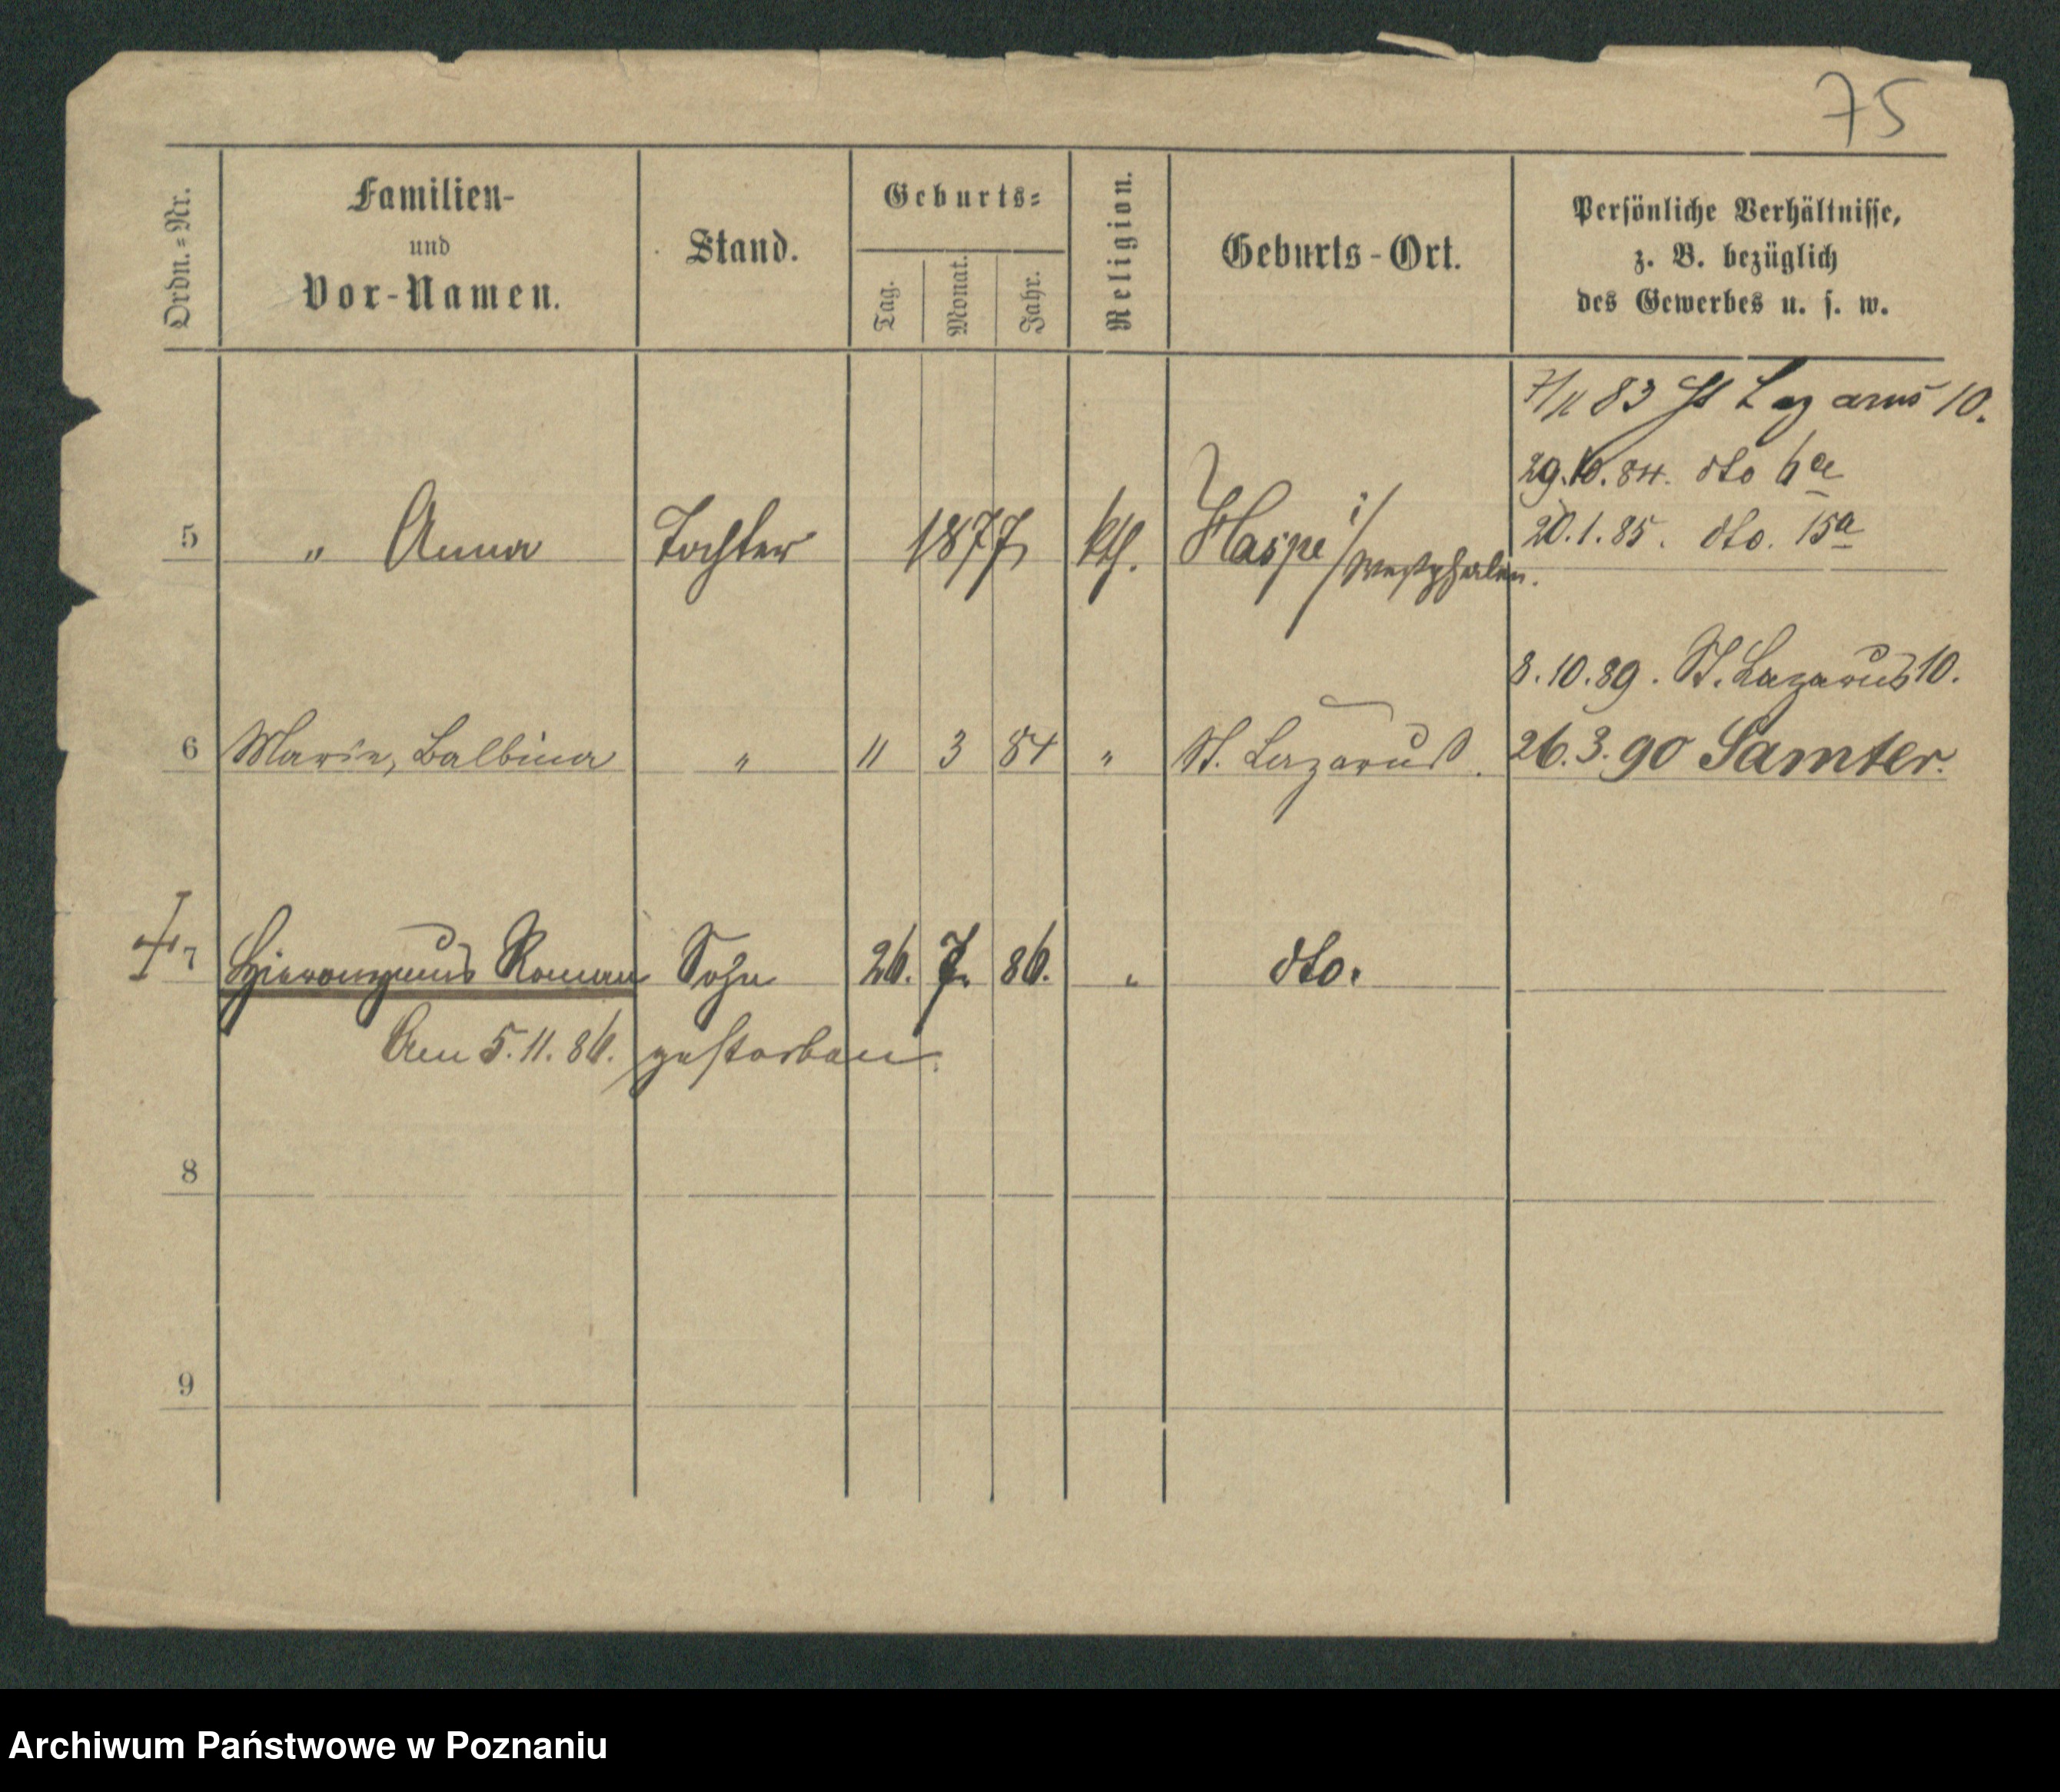 75
Ordn.=Nr.
Familien-
und
Vor-Namen.
Stand.
Geburts=
Tag.
Monat.
Jahr.
Religion.
Geburts-Ort.
Persönliche Verhältnisse,
z. B. bezüglich
des Gewerbes u. s. w.
7/11 83 St Lazarus 10.
29.10.84. dto 6a
20.1.85. dto. 15a
5 " Anna Tochter 1877 kth. Haspe i/Westphalen.
8.10.89. St. Lazarus 10.
6 Marie, Balbina " 11 3 84 " St. Lazarus. 26.3.90 Samter.
7 Hieronymus Roman Sohn 26. 7. 86. " dto.
Am 5.11.86. gestorben.
8
9
Archiwum Państwowe w Poznaniu